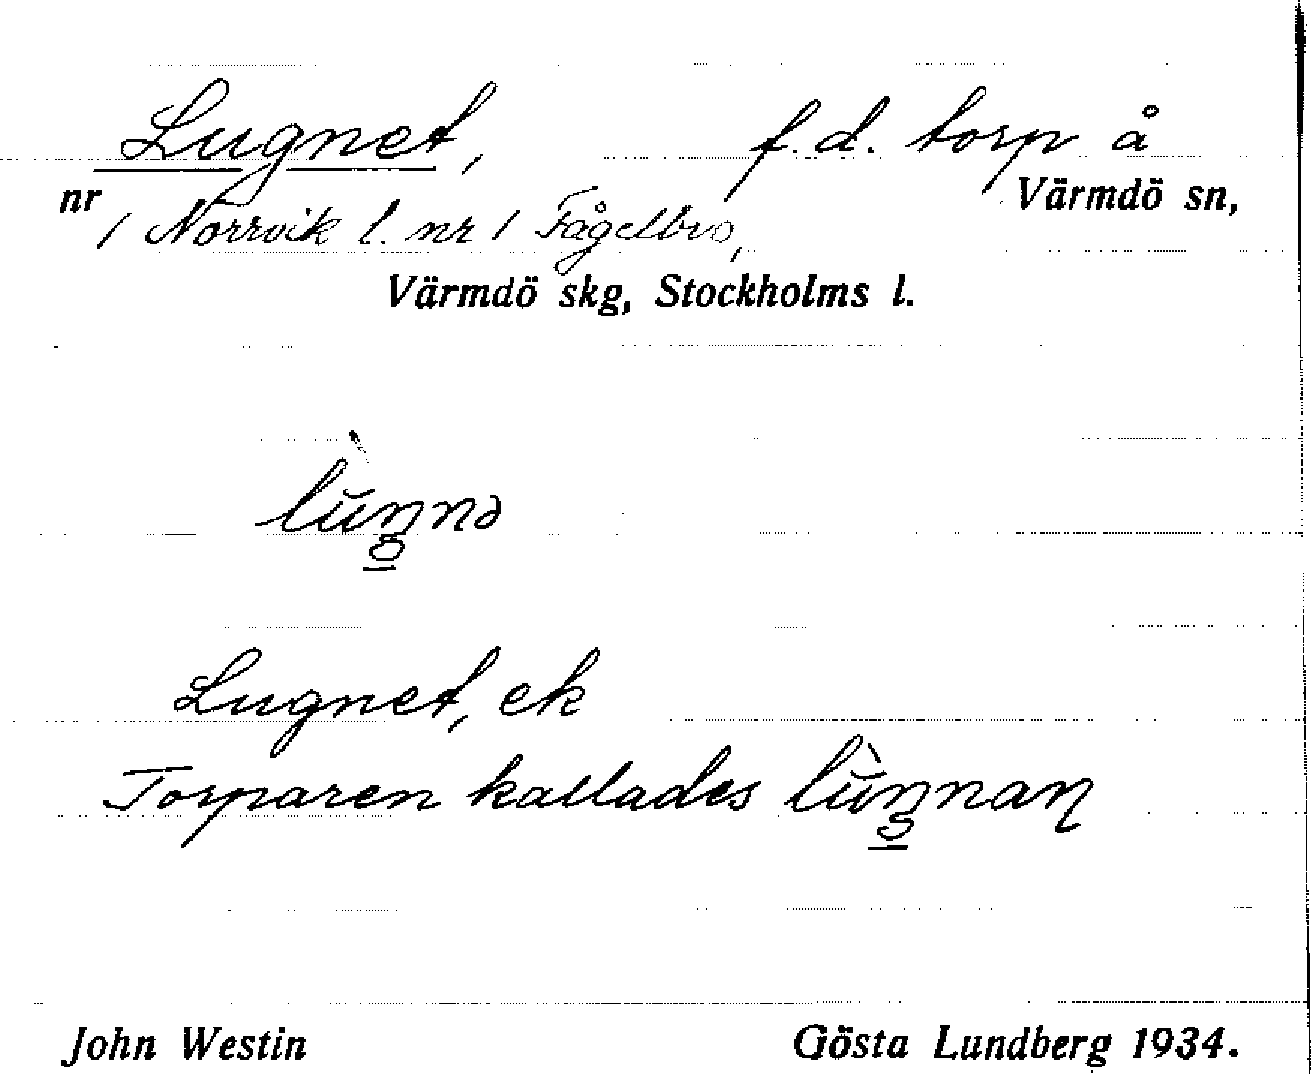 Lugnet, f.d. torp å
nr 1 Norrvik l. nr 1 Fågelbro, Värmdö sn,
Värmdö skg, Stockholms l.
lŭ̀ŋnə
Lugnet, ek
Torparen kallades lŭ̀ŋnaɳ
John Westin Gösta Lundberg 1934.